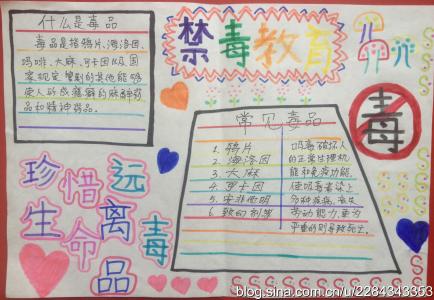 什么是毒品
毒品是指鸦片、海洛因、
吗啡、大麻、可卡因以及国
家规定管制的其他能够
使人形成瘾癖的麻醉药
品和精神药品
禁毒教育
毒
常见毒品
1. 鸦片
2. 海洛因
3. 大麻
4. 可卡因
5. 安非他明
6. 致幻剂等
吸毒破坏人
的正常生理机
能和免疫功能,
使吸毒者染上
多种疾病,丧失
劳动能力,更为
严重的则导致死亡。
珍惜
生命
远离
毒品
blog.sina.com.cn/u/2284343353